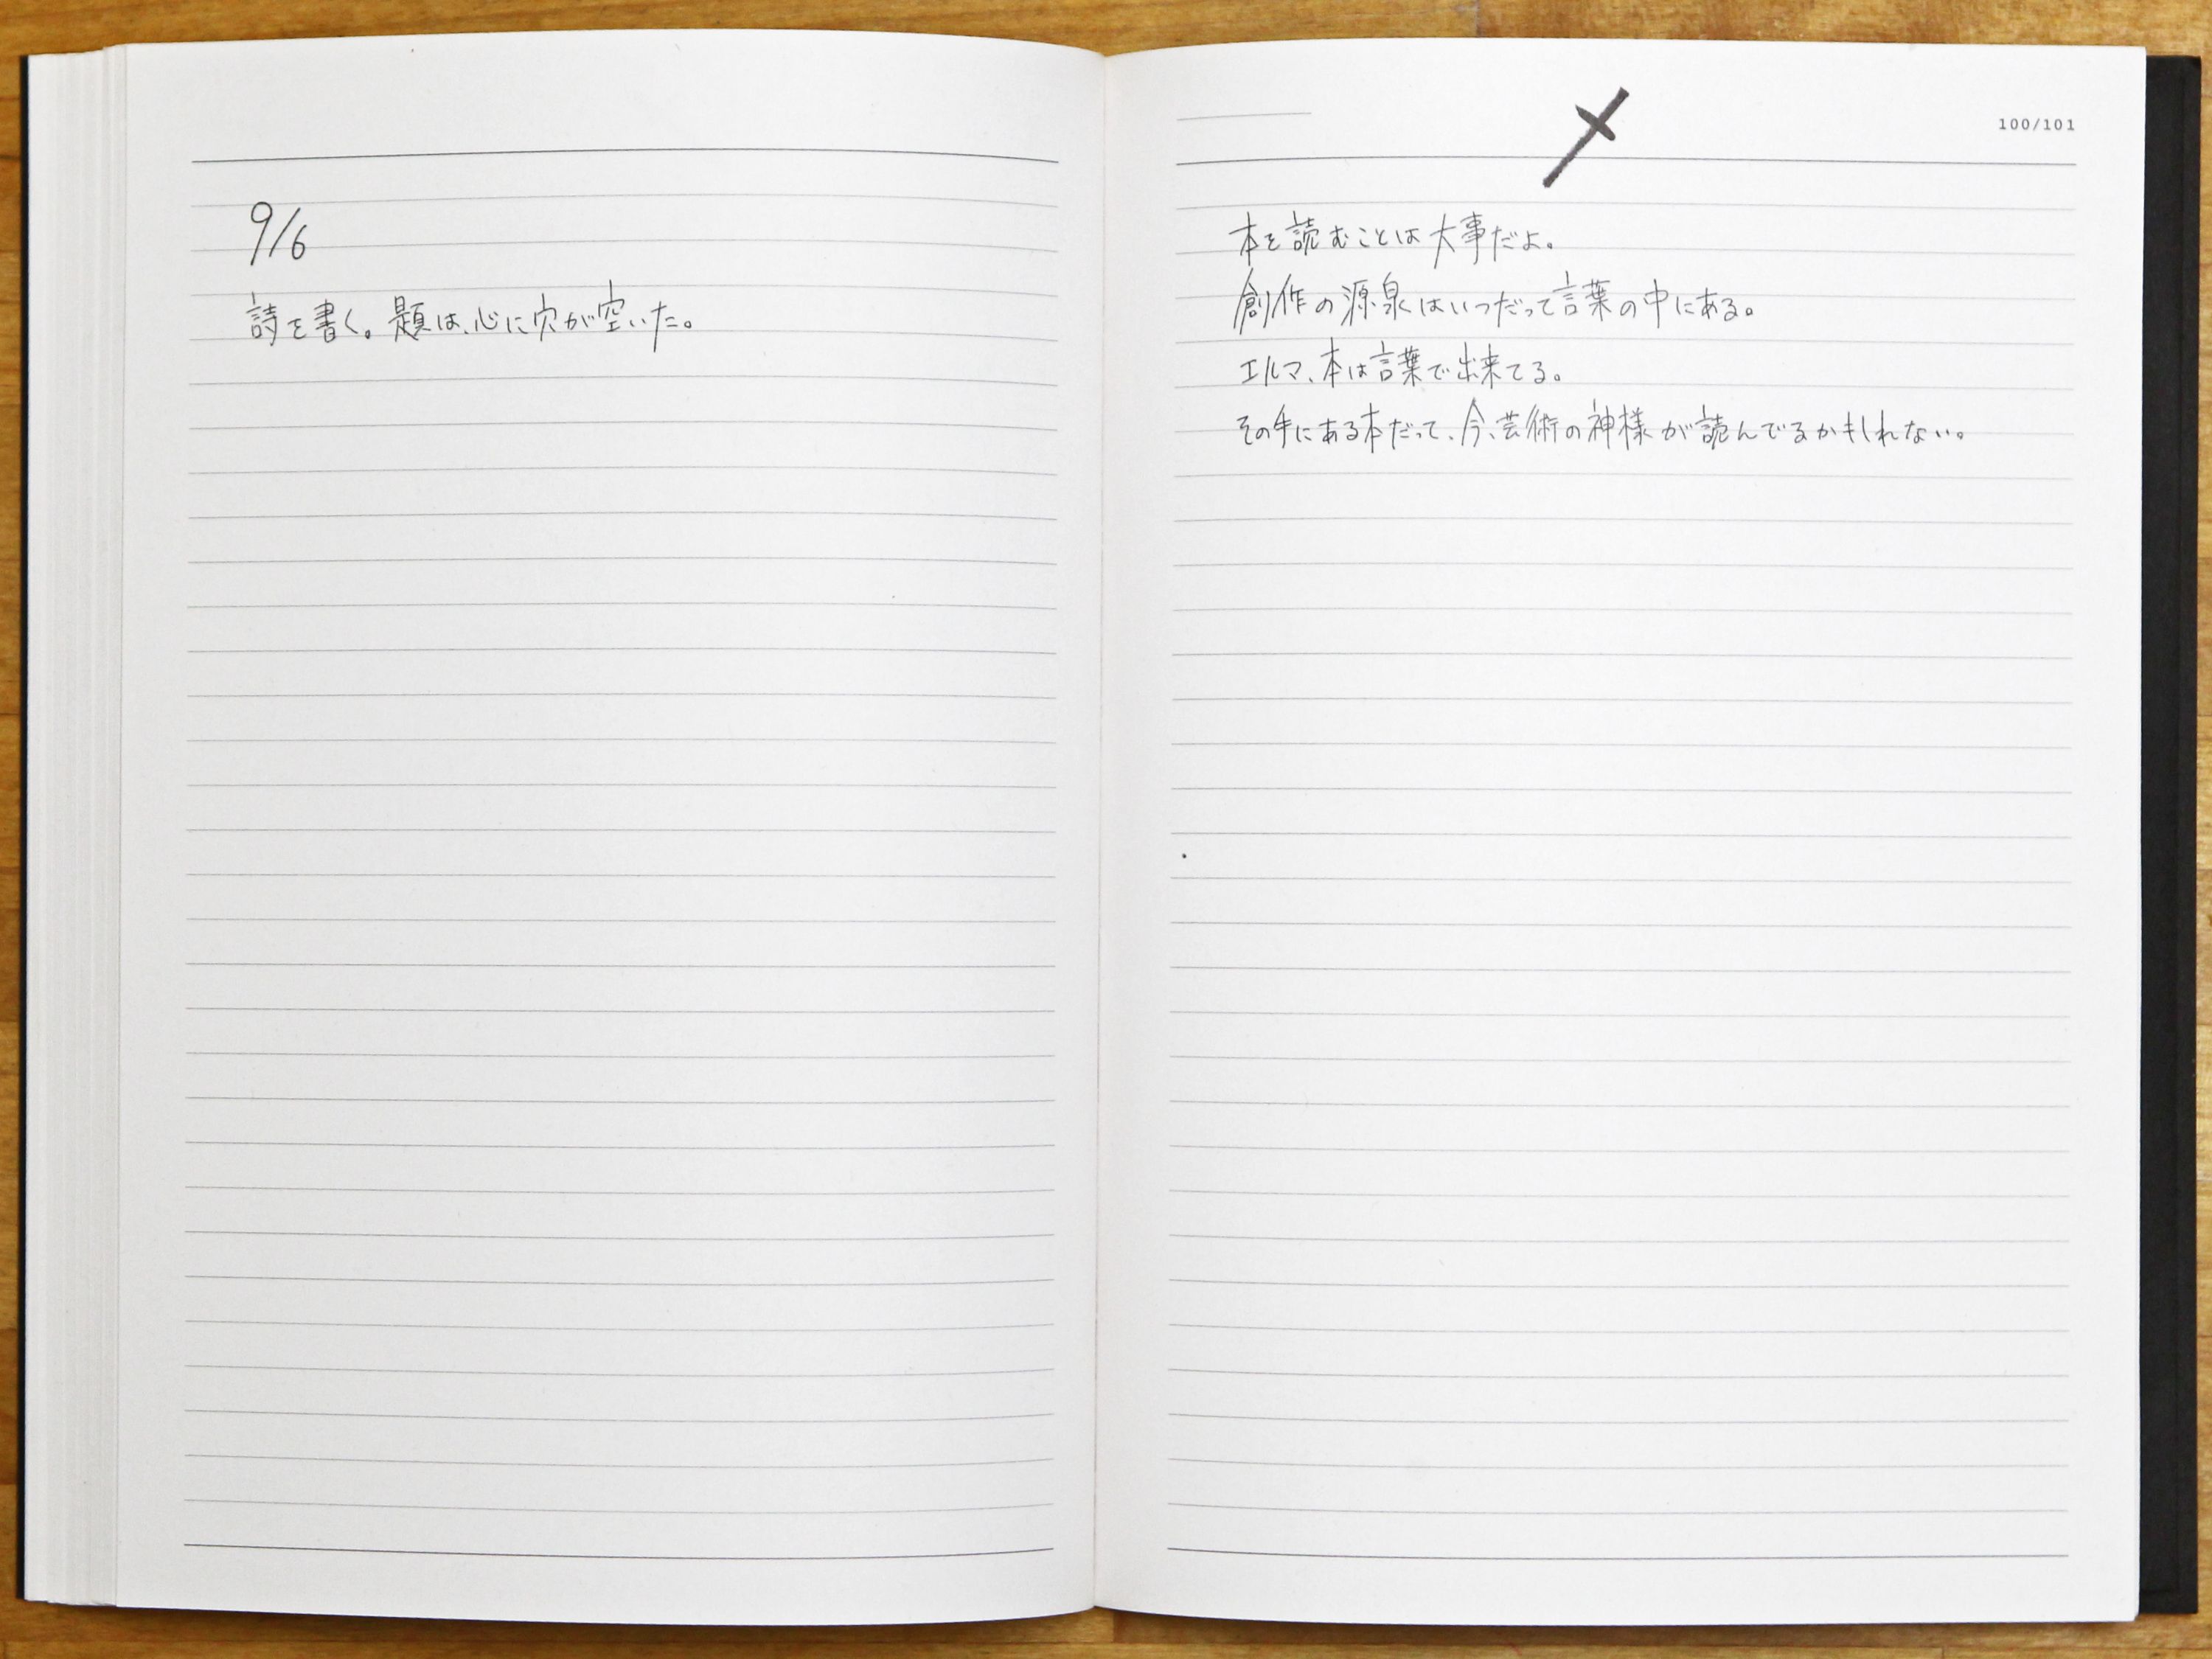 9/6
詩を書く。題は、心に穴が空いた。
100/101
本を読むことは大事だよ。
創作の源泉はいつだって言葉の中にある。
エルマ、本は言葉で出来てる。
その手にある本だって、今、芸術の神様が読んでるかもしれない。